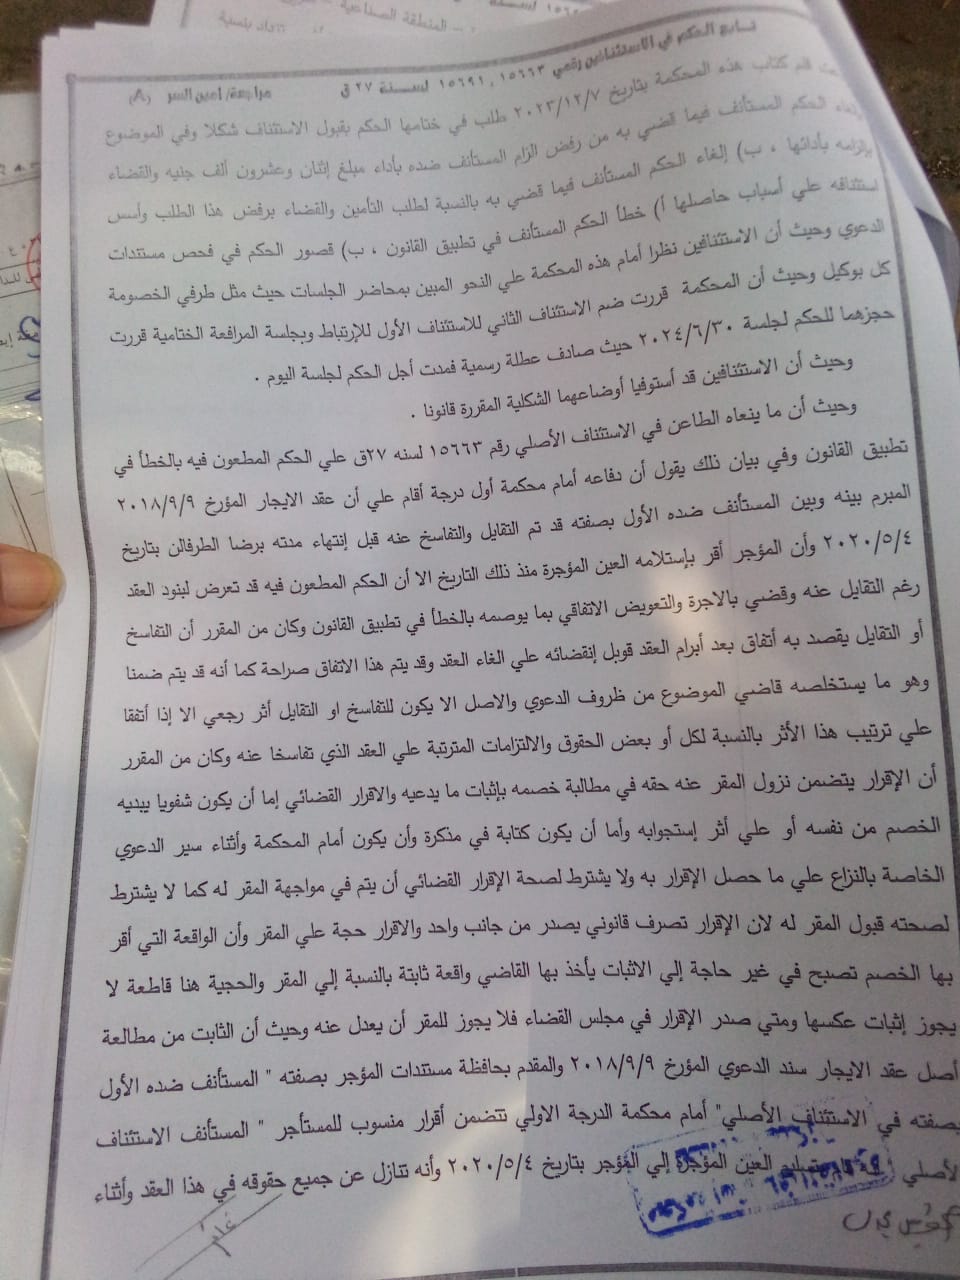 تابع الحكم في الاستئنافين رقمي ١٥٦٦٣ , ١٥٦٩١ لسنة ٢٧ ق مراجعة/ امين السر (٨)
قلم كتاب هذه المحكمة بتاريخ ٢٠٢٣/١٢/٧ طلب في ختامها الحكم بقبول الاستئناف شكلا وفي الموضوع
الحكم المستأنف فيما قضي به من رفض الزام المستأنف ضده بأداء مبلغ إثنان وعشرون ألف جنيه والقضاء
بإلزامه بأدائها ، ب) إلغاء الحكم المستأنف فيما قضي به بالنسبة لطلب التأمين والقضاء برفض هذا الطلب وأسس
استئنافه علي أسباب حاصلها أ) خطأ الحكم المستأنف في تطبيق القانون ، ب) قصور الحكم في فحص مستندات
الدعوي وحيث أن الاستئنافين نظرا أمام هذه المحكمة علي النحو المبين بمحاضر الجلسات حيث مثل طرفي الخصومة
كل بوكيل وحيث أن المحكمة قررت ضم الاستئناف الثاني للاستئناف الأول للإرتباط وبجلسة المرافعة الختامية قررت
حجزهما للحكم لجلسة ٢٠٢٤/٦/٣٠ حيث صادف عطلة رسمية فمدت أجل الحكم لجلسة اليوم .
وحيث أن الاستئنافين قد أستوفيا أوضاعهما الشكلية المقررة قانونا .
وحيث أن ما ينعاه الطاعن في الاستئناف الأصلي رقم ١٥٦٦٣ لسنه ٢٧ق علي الحكم المطعون فيه بالخطأ في
تطبيق القانون وفي بيان ذلك يقول أن دفاعه أمام محكمة أول درجة أقام علي أن عقد الايجار المؤرخ ٢٠١٨/٩/٩
المبرم بينه وبين المستأنف ضده الأول بصفته قد تم التقايل والتفاسخ عنه قبل إنتهاء مدته برضا الطرفان بتاريخ
٢٠٢٠/٥/٤ وأن المؤجر أقر بإستلامه العين المؤجرة منذ ذلك التاريخ الا أن الحكم المطعون فيه قد تعرض لبنود العقد
رغم التقايل عنه وقضي بالاجرة والتعويض الاتفاقي بما يوصمه بالخطأ في تطبيق القانون وكان من المقرر أن التفاسخ
أو التقايل يقصد به أتفاق بعد أبرام العقد قوبل إنقضائه علي الغاء العقد وقد يتم هذا الاتفاق صراحة كما أنه قد يتم ضمنا
وهو ما يستخلصه قاضي الموضوع من ظروف الدعوي والاصل الا يكون للتفاسخ او التقايل أثر رجعي الا إذا أتفقا
علي ترتيب هذا الأثر بالنسبة لكل أو بعض الحقوق والالتزامات المترتبة علي العقد الذي تفاسخا عنه وكان من المقرر
أن الإقرار يتضمن نزول المقر عنه حقه في مطالبة خصمه بإثبات ما يدعيه والاقرار القضائي إما أن يكون شفويا يبديه
الخصم من نفسه أو علي أثر إستجوابه وأما أن يكون كتابة في مذكرة وأن يكون أمام المحكمة وأثناء سير الدعوي
الخاصة بالنزاع علي ما حصل الإقرار به ولا يشترط لصحة الإقرار القضائي أن يتم في مواجهة المقر له كما لا يشترط
لصحته قبول المقر له لان الإقرار تصرف قانوني يصدر من جانب واحد والاقرار حجة علي المقر وأن الواقعة التي أقر
بها الخصم تصبح في غير حاجة إلي الاثبات يأخذ بها القاضي واقعة ثابتة بالنسبة إلي المقر والحجية هنا قاطعة لا
يجوز إثبات عكسها ومتي صدر الإقرار في مجلس القضاء فلا يجوز للمقر أن يعدل عنه وحيث أن الثابت من مطالعة
أصل عقد الايجار سند الدعوي المؤرخ ٢٠١٨/٩/٩ والمقدم بحافظة مستندات المؤجر بصفته " المستأنف ضده الأول
بصفته في الاستئناف الأصلي" أمام محكمة الدرجة الاولي تتضمن أقرار منسوب للمستأجر " المستأنف الاستئناف
الأصلي العين المؤجرة إلي المؤجر بتاريخ ٢٠٢٠/٥/٤ وأنه تنازل عن جميع حقوقه في هذا العقد وأثناء